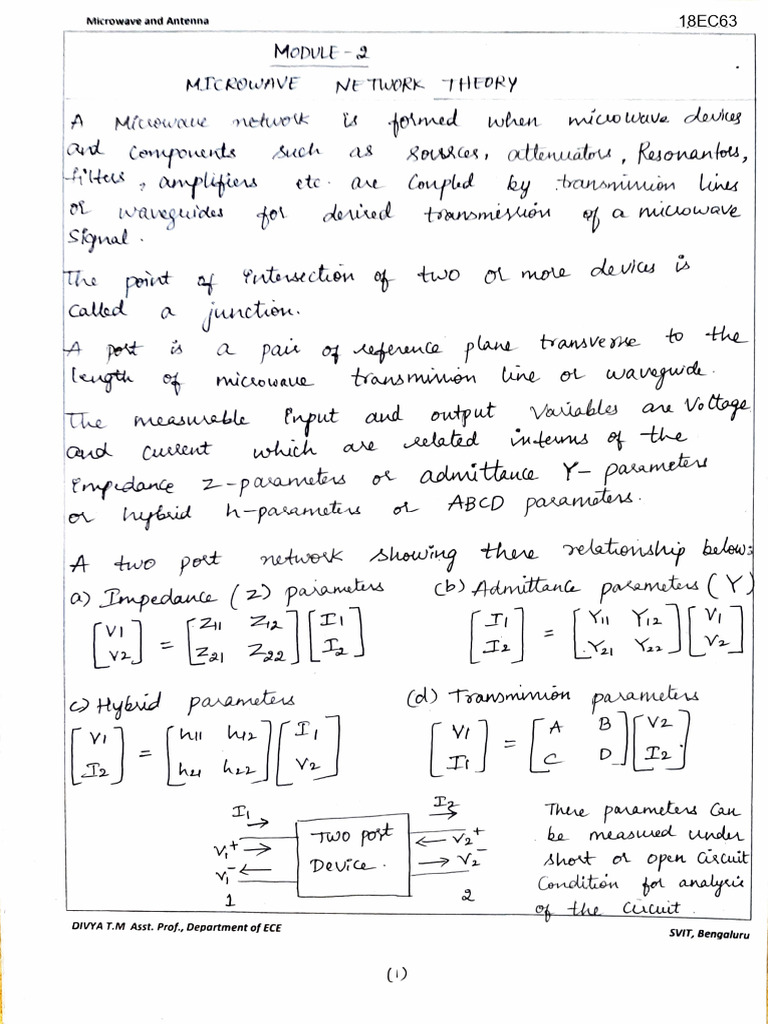 Microwave and Antenna 18EC63
MODULE-2
MICROWAVE NETWORK THEORY
A Microwave network is formed when microwave devices
and components such as sources, attenuators, Resonantors,
filters, amplifiers etc. are Coupled by transmission lines
or waveguides for desired transmission of a microwave
Signal.
The point of intersection of two or more devices is
called a junction.
A port is a pair of reference plane transverse to the
length of microwave transmission line or waveguide.
The measurable input and output Variables are Voltage
and current which are related interms of the
Impedance Z-parameters or admittance Y- parameters
or hybrid h-parameters or ABCD parameters.
A two port network showing these relationship below:
a) Impedance (Z) parameters (b) Admittance parameters (Y)
[V1 V2] = [Z11 Z12 Z21 Z22] [I1 I2] [I1 I2] = [Y11 Y12 Y21 Y22] [V1 V2]
c) Hybrid parameters (d) Transmission parameters
[V1 I2] = [h11 h12 h21 h22] [I1 V2] [V1 I1] = [A B C D] [V2 I2]
I1 → I2 →
V1+ → TWO PORT ← V2+
V1- ← DEVICE. → V2-
1 2
These parameters Can
be measured under
short or open Circuit
Condition for analysis
of the Circuit.
DIVYA T.M Asst. Prof., Department of ECE SVIT, Bengaluru
(1)